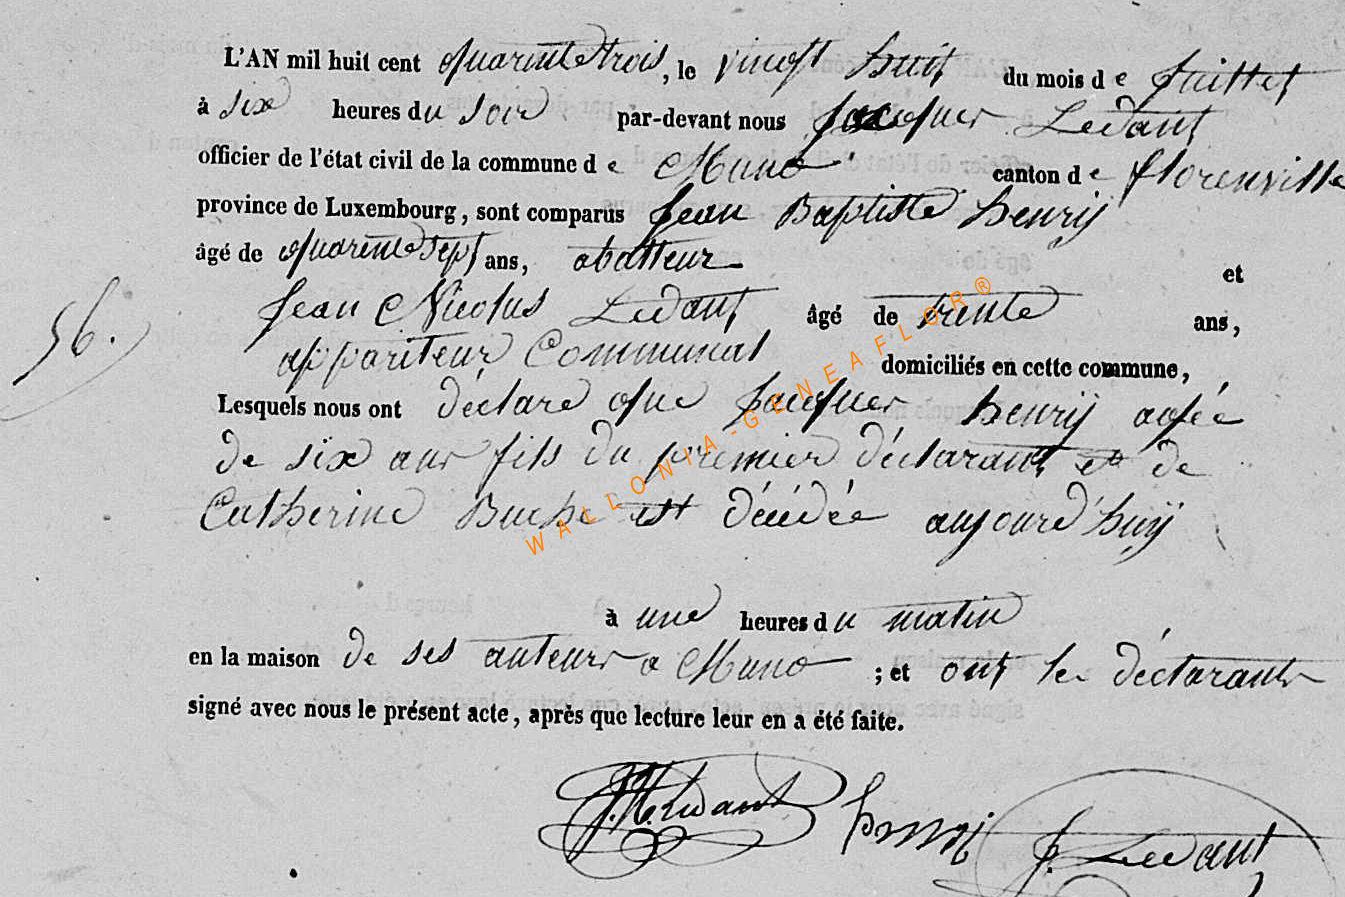 L'AN mil huit cent quarante trois, le vingt huit du mois de Juillet
à six heures du soir par-devant nous Jacques Ledant
officier de l'état civil de la commune de Muno canton de florenville
province de Luxembourg, sont comparus Jean Baptiste henry
âgé de quarante sept ans, abatteur et
Jean Nicolas Ledant âgé de trente ans,
appariteur Communal domiciliés en cette commune,
56.
Lesquels nous ont déclaré que Jacques henrÿ agée
de six ans fils du premier déclarant et de
Catherine est décédée aujourd'huÿ
à une heures du matin
en la maison de ses auteurs a Muno ; et ont les déclarants
signé avec nous le présent acte, après que lecture leur en a été faite.
J. N. Ledant henry J. Ledant
WALLONIA-GENEAFLOR®